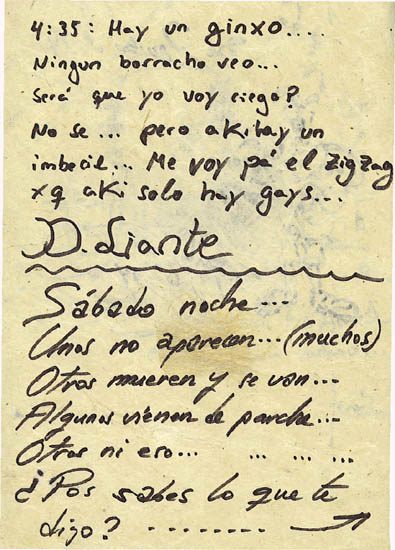 4:35: Hay un ginxo....
Ningun borracho veo...
Será que yo voy ciego?
No se... pero aki hay un
imbecil... Me voy pá el ZigZag
xq aki solo hay gays...
D. Liante
Sábado noche...
Unos no aparecen...(muchos)
Otros mueren y se van...
Algunos vienen de parche...
Otros ni eso... ... ... ...
¿Pos sabes lo que te
digo? ........